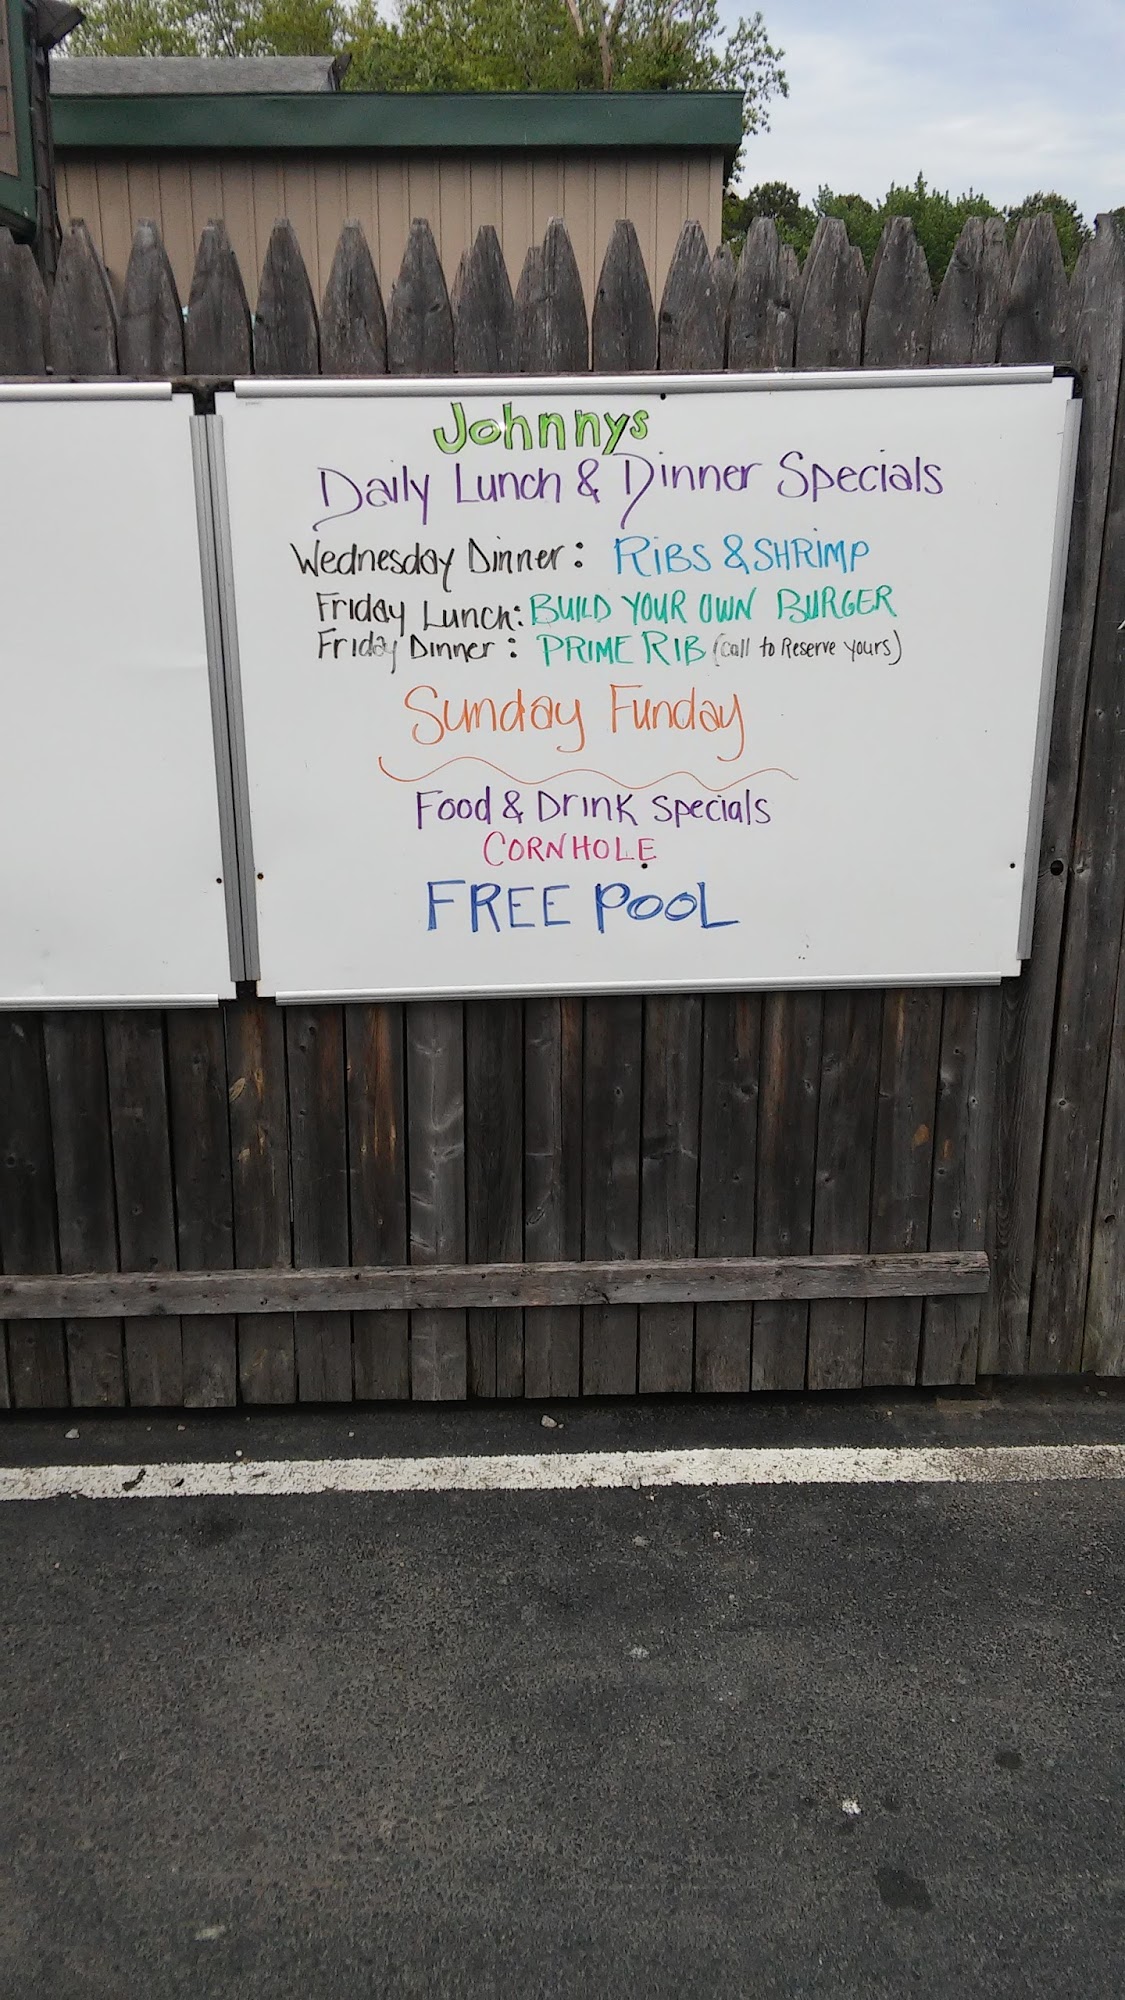 Johnnys
Daily Lunch & Dinner Specials
Wednesday Dinner: RiBS & SHRIMP
Friday Lunch: BUILD YOUR OWN BURGER
Friday Dinner: PRIME RIB (call to Reserve yours)
Sunday Funday
Food & Drink Specials
CORNHOLE
FREE POOL